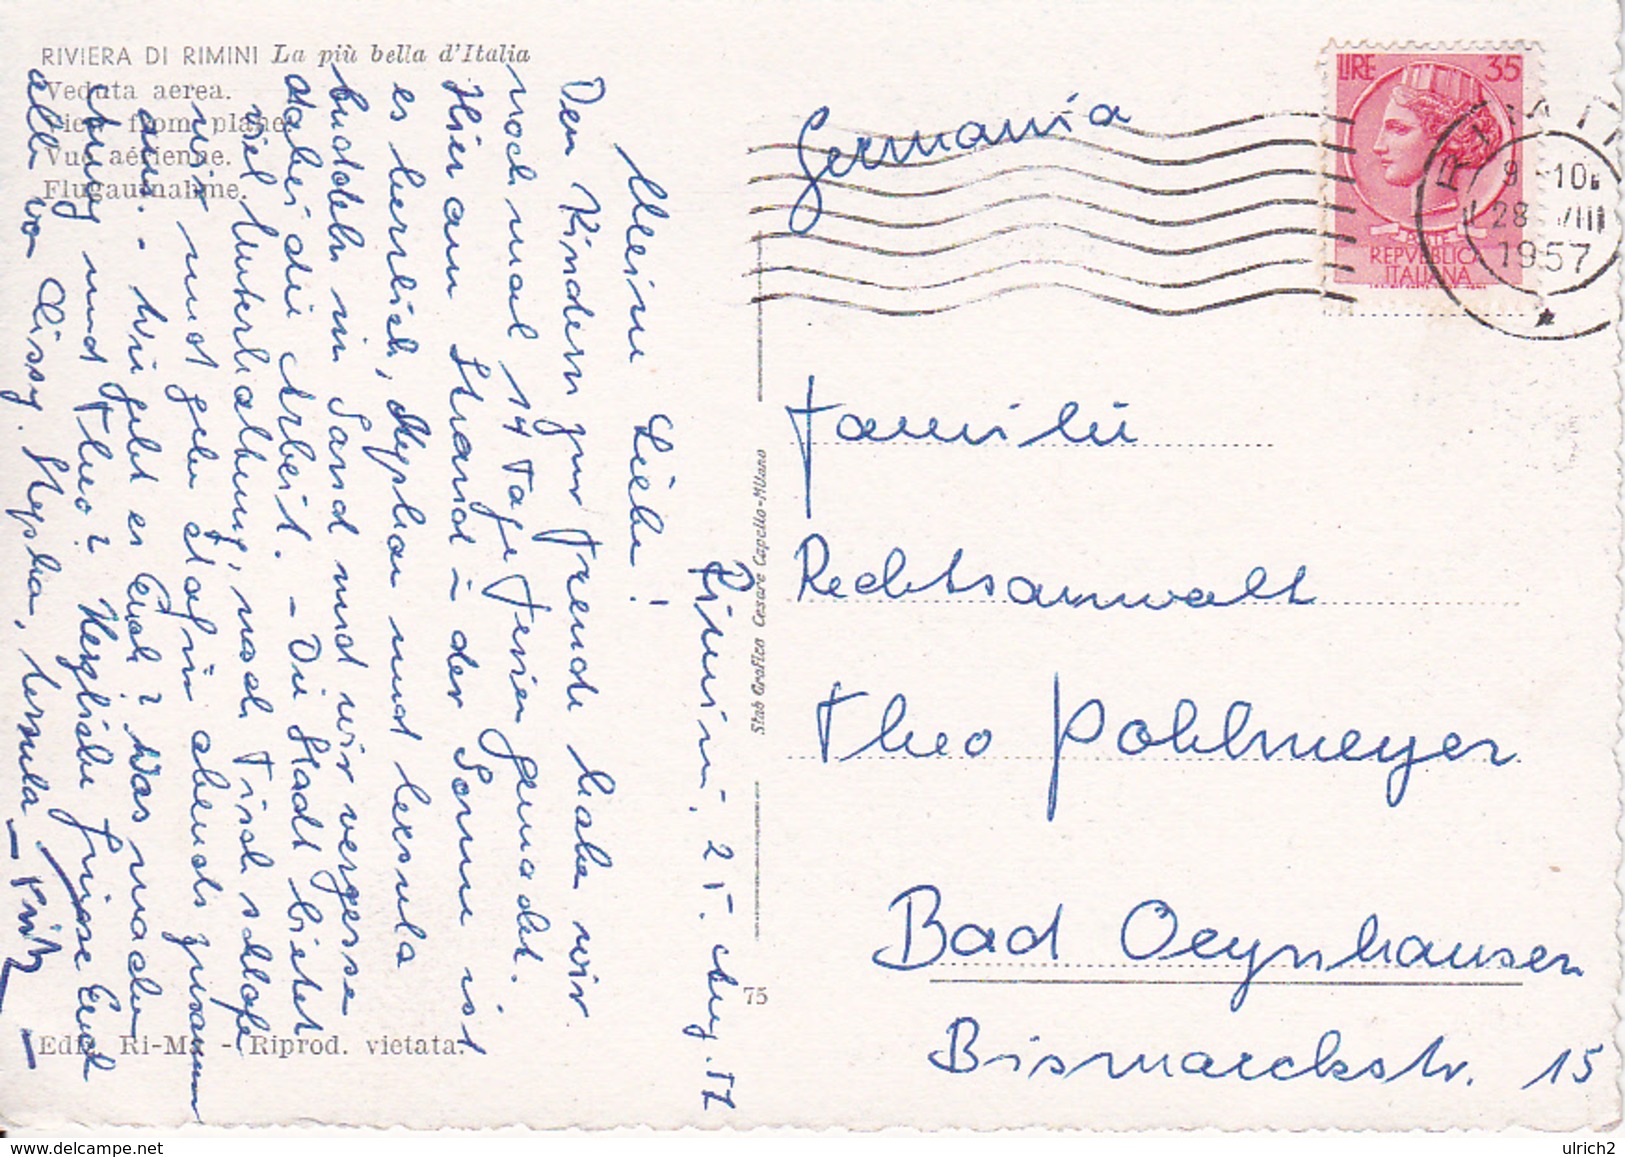 RIVIERA DI RIMINI La più bella d'Italia
Veduta aerea.
View from plane.
Vue aérienne.
Flugaufnahme.
Rimini, 25. Aug. 57
Meine Lieben!
Den Kindern zur Freude haben wir
noch mal 14 Tage Ferien gemacht.
Hier am Strand in der Sonne ist
es herrlich, Stephan und Ursula
buddeln im Sand und wir vergessen
dabei die Arbeit. - Die Stadt bietet
viel Unterhaltung, nach Tisch schlafen
wir und gehen dafür abends zusammen
aus. - Wie geht es Euch? Was machen
und Theo? Herzliche Grüsse Euch
allen von Cissy, Stephan, Ursula - Fritz
Edit. Ri-Ma - Riprod. vietata.
75
Stab Grafico Cesare Capello-Milano
Germania
LIRE 35
REPVBBLICA
ITALIANA
9-10
28 VIII
1957
Familie
Rechtsanwalt
Theo Pohlmeyer
Bad Oeynhausen
Bismarckstr. 15
ulrich2